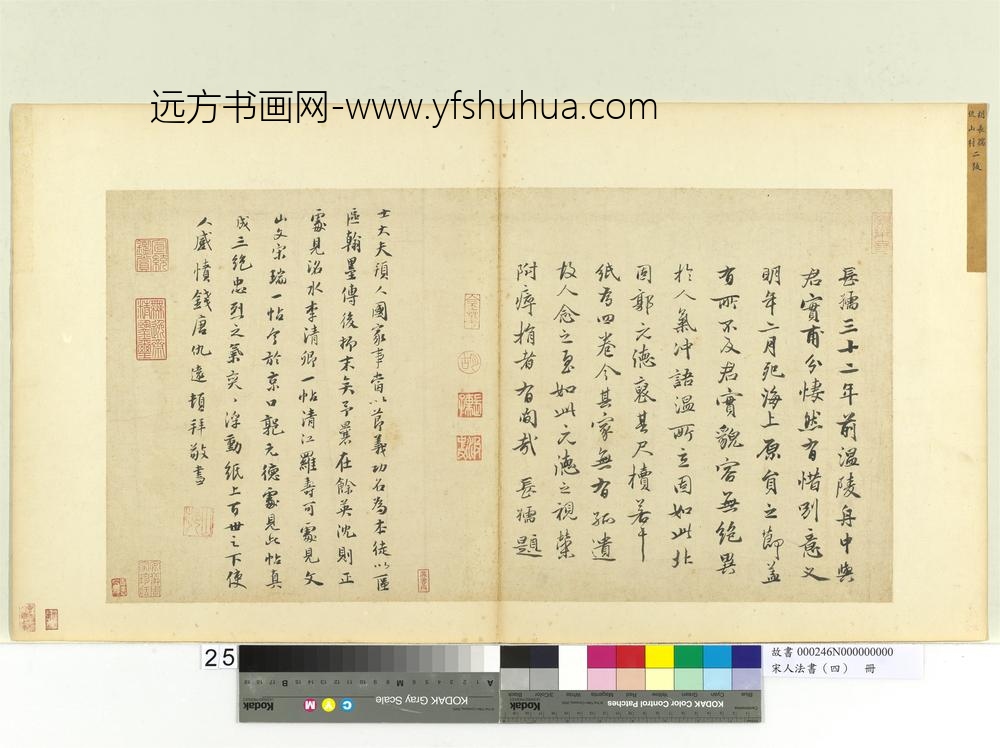 远方书画网-www.yfshuhua.com
胡長孺
仇山村二跋
長孺三十二年前溫陵舟中與
君實甫分悽然有惜別意又
明年二月死海上原負之節蓋
有所不及君實貌容無絕異
於人氣沖語溫所立固如此北
固郭元德裒其尺牘若干
紙為四卷今其家無有孤遺
故人念之至如此元德之視榮
附瘁捐者有間哉長孺題
士大夫預人國家事當以節義功名為本徒以區
區翰墨傳後抑末矣予曩在餘英沈則正
處見洺水李清卿一帖清江羅壽可處見文
山文宋瑞一帖今於京口郭元德處見此帖真
成三絕忠烈之氣奕奕浮動紙上百世之下使
人感憤錢唐仇遠頓拜敬書
宣統鑒賞
無逸齋精鑒璽
25
故書 000246N000000000
宋人法書（四） 冊
Kodak
KODAK Gray Scale
C Y M
A
B
KODAK Color Control Patches
Blue
Cyan
Green
Yellow
Red
Magenta
White
3/Color
Black